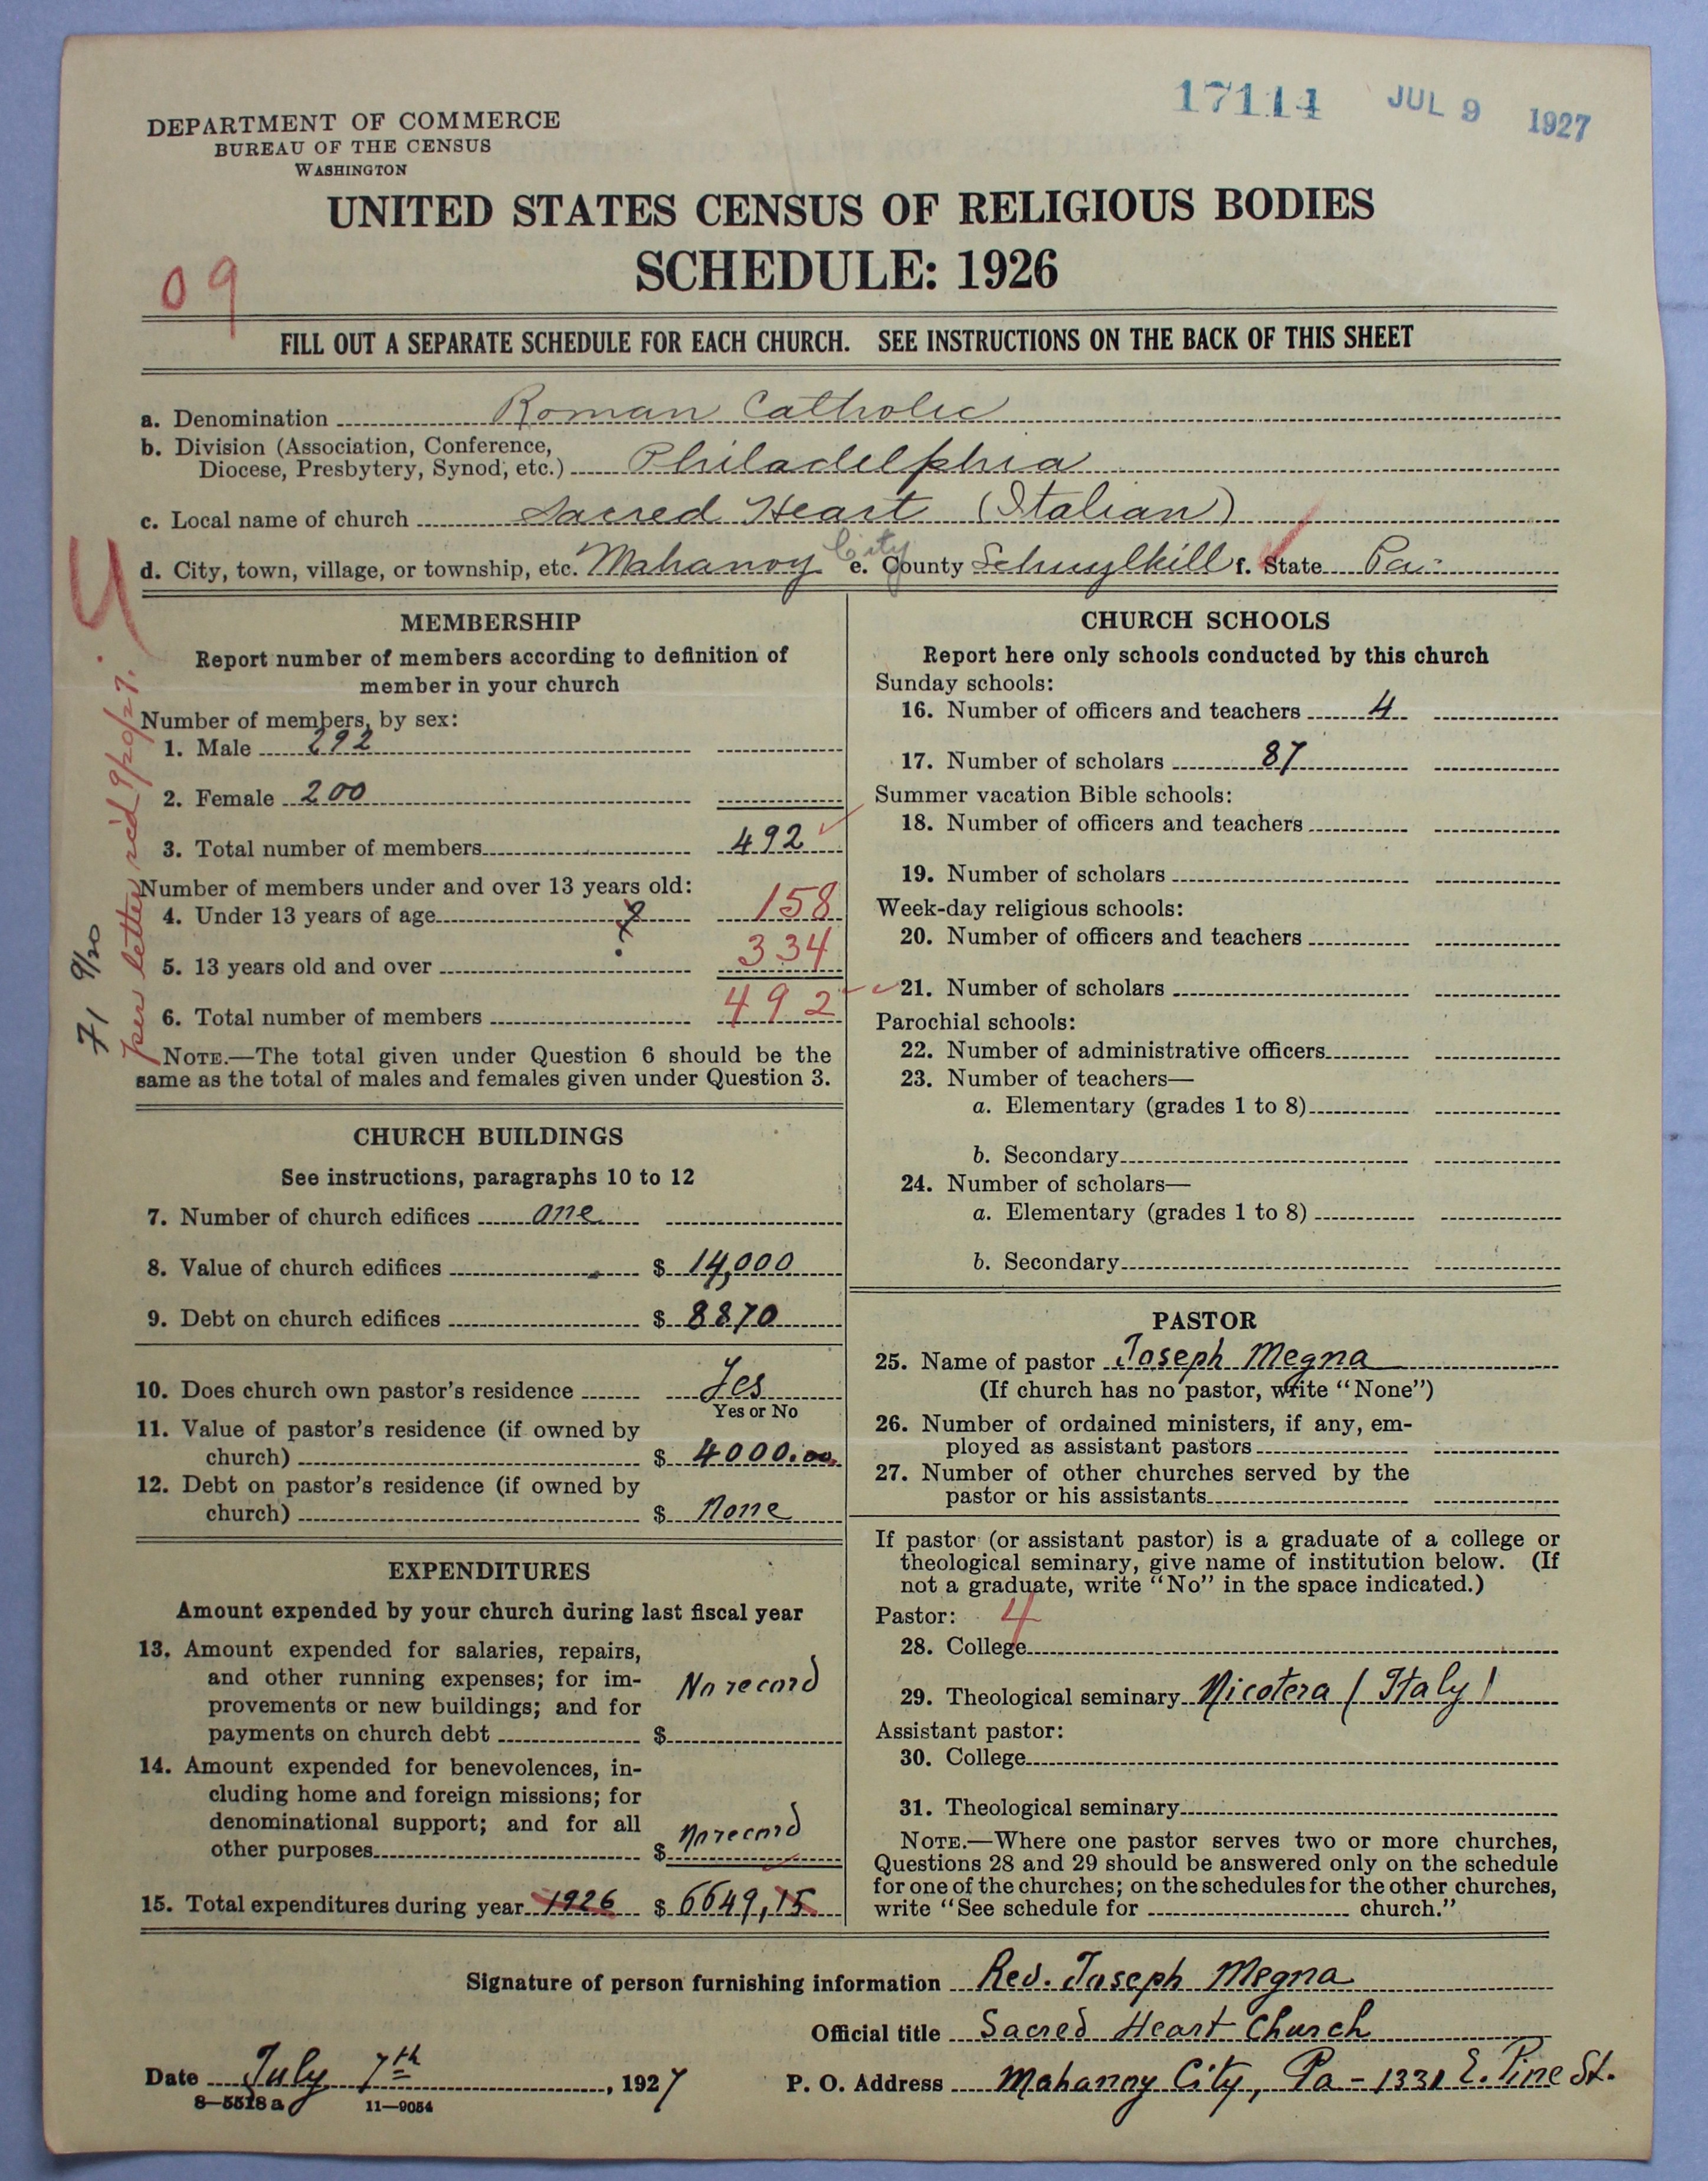 17114 JUL 9 1927
DEPARTMENT OF COMMERCE
BUREAU OF THE CENSUS
WASHINGTON
UNITED STATES CENSUS OF RELIGIOUS BODIES
SCHEDULE: 1926
09
FILL OUT A SEPARATE SCHEDULE FOR EACH CHURCH. SEE INSTRUCTIONS ON THE BACK OF THIS SHEET
a. Denomination Roman Catholic
b. Division (Association, Conference,
Diocese, Presbytery, Synod, etc.) Philadelphia
c. Local name of church Sacred Heart (Italian)
d. City, town, village, or township, etc. Mahanoy City e. County Schuylkill f. State Pa.
4
per letter rc'd 9/20/27.
71 9/20
MEMBERSHIP
Report number of members according to definition of
member in your church
Number of members, by sex:
1. Male 292
2. Female 200
3. Total number of members 492
Number of members under and over 13 years old:
4. Under 13 years of age ? 158
5. 13 years old and over 334
6. Total number of members 492
NOTE.—The total given under Question 6 should be the
same as the total of males and females given under Question 3.
CHURCH BUILDINGS
See instructions, paragraphs 10 to 12
7. Number of church edifices one
8. Value of church edifices $ 14,000
9. Debt on church edifices $ 8870
10. Does church own pastor's residence Yes
Yes or No
11. Value of pastor's residence (if owned by
church) $ 4000.00
12. Debt on pastor's residence (if owned by
church) $ None
EXPENDITURES
Amount expended by your church during last fiscal year
13. Amount expended for salaries, repairs,
and other running expenses; for im-
provements or new buildings; and for
payments on church debt $ No record
14. Amount expended for benevolences, in-
cluding home and foreign missions; for
denominational support; and for all
other purposes $ No record
15. Total expenditures during year 1926 $ 6649,15
CHURCH SCHOOLS
Report here only schools conducted by this church
Sunday schools:
16. Number of officers and teachers 4
17. Number of scholars 87
Summer vacation Bible schools:
18. Number of officers and teachers
19. Number of scholars
Week-day religious schools:
20. Number of officers and teachers
21. Number of scholars
Parochial schools:
22. Number of administrative officers
23. Number of teachers—
a. Elementary (grades 1 to 8)
b. Secondary
24. Number of scholars—
a. Elementary (grades 1 to 8)
b. Secondary
PASTOR
25. Name of pastor Joseph Megna
(If church has no pastor, write "None")
26. Number of ordained ministers, if any, em-
ployed as assistant pastors
27. Number of other churches served by the
pastor or his assistants
If pastor (or assistant pastor) is a graduate of a college or
theological seminary, give name of institution below. (If
not a graduate, write "No" in the space indicated.)
Pastor: 4
28. College
29. Theological seminary Nicotera (Italy)
Assistant pastor:
30. College
31. Theological seminary
NOTE.—Where one pastor serves two or more churches,
Questions 28 and 29 should be answered only on the schedule
for one of the churches; on the schedules for the other churches,
write "See schedule for church."
Signature of person furnishing information Rev. Joseph Megna
Official title Sacred Heart Church
Date July 7th, 1927 P. O. Address Mahanoy City, Pa - 1331 E. Pine St.
8—5518 a 11—9054